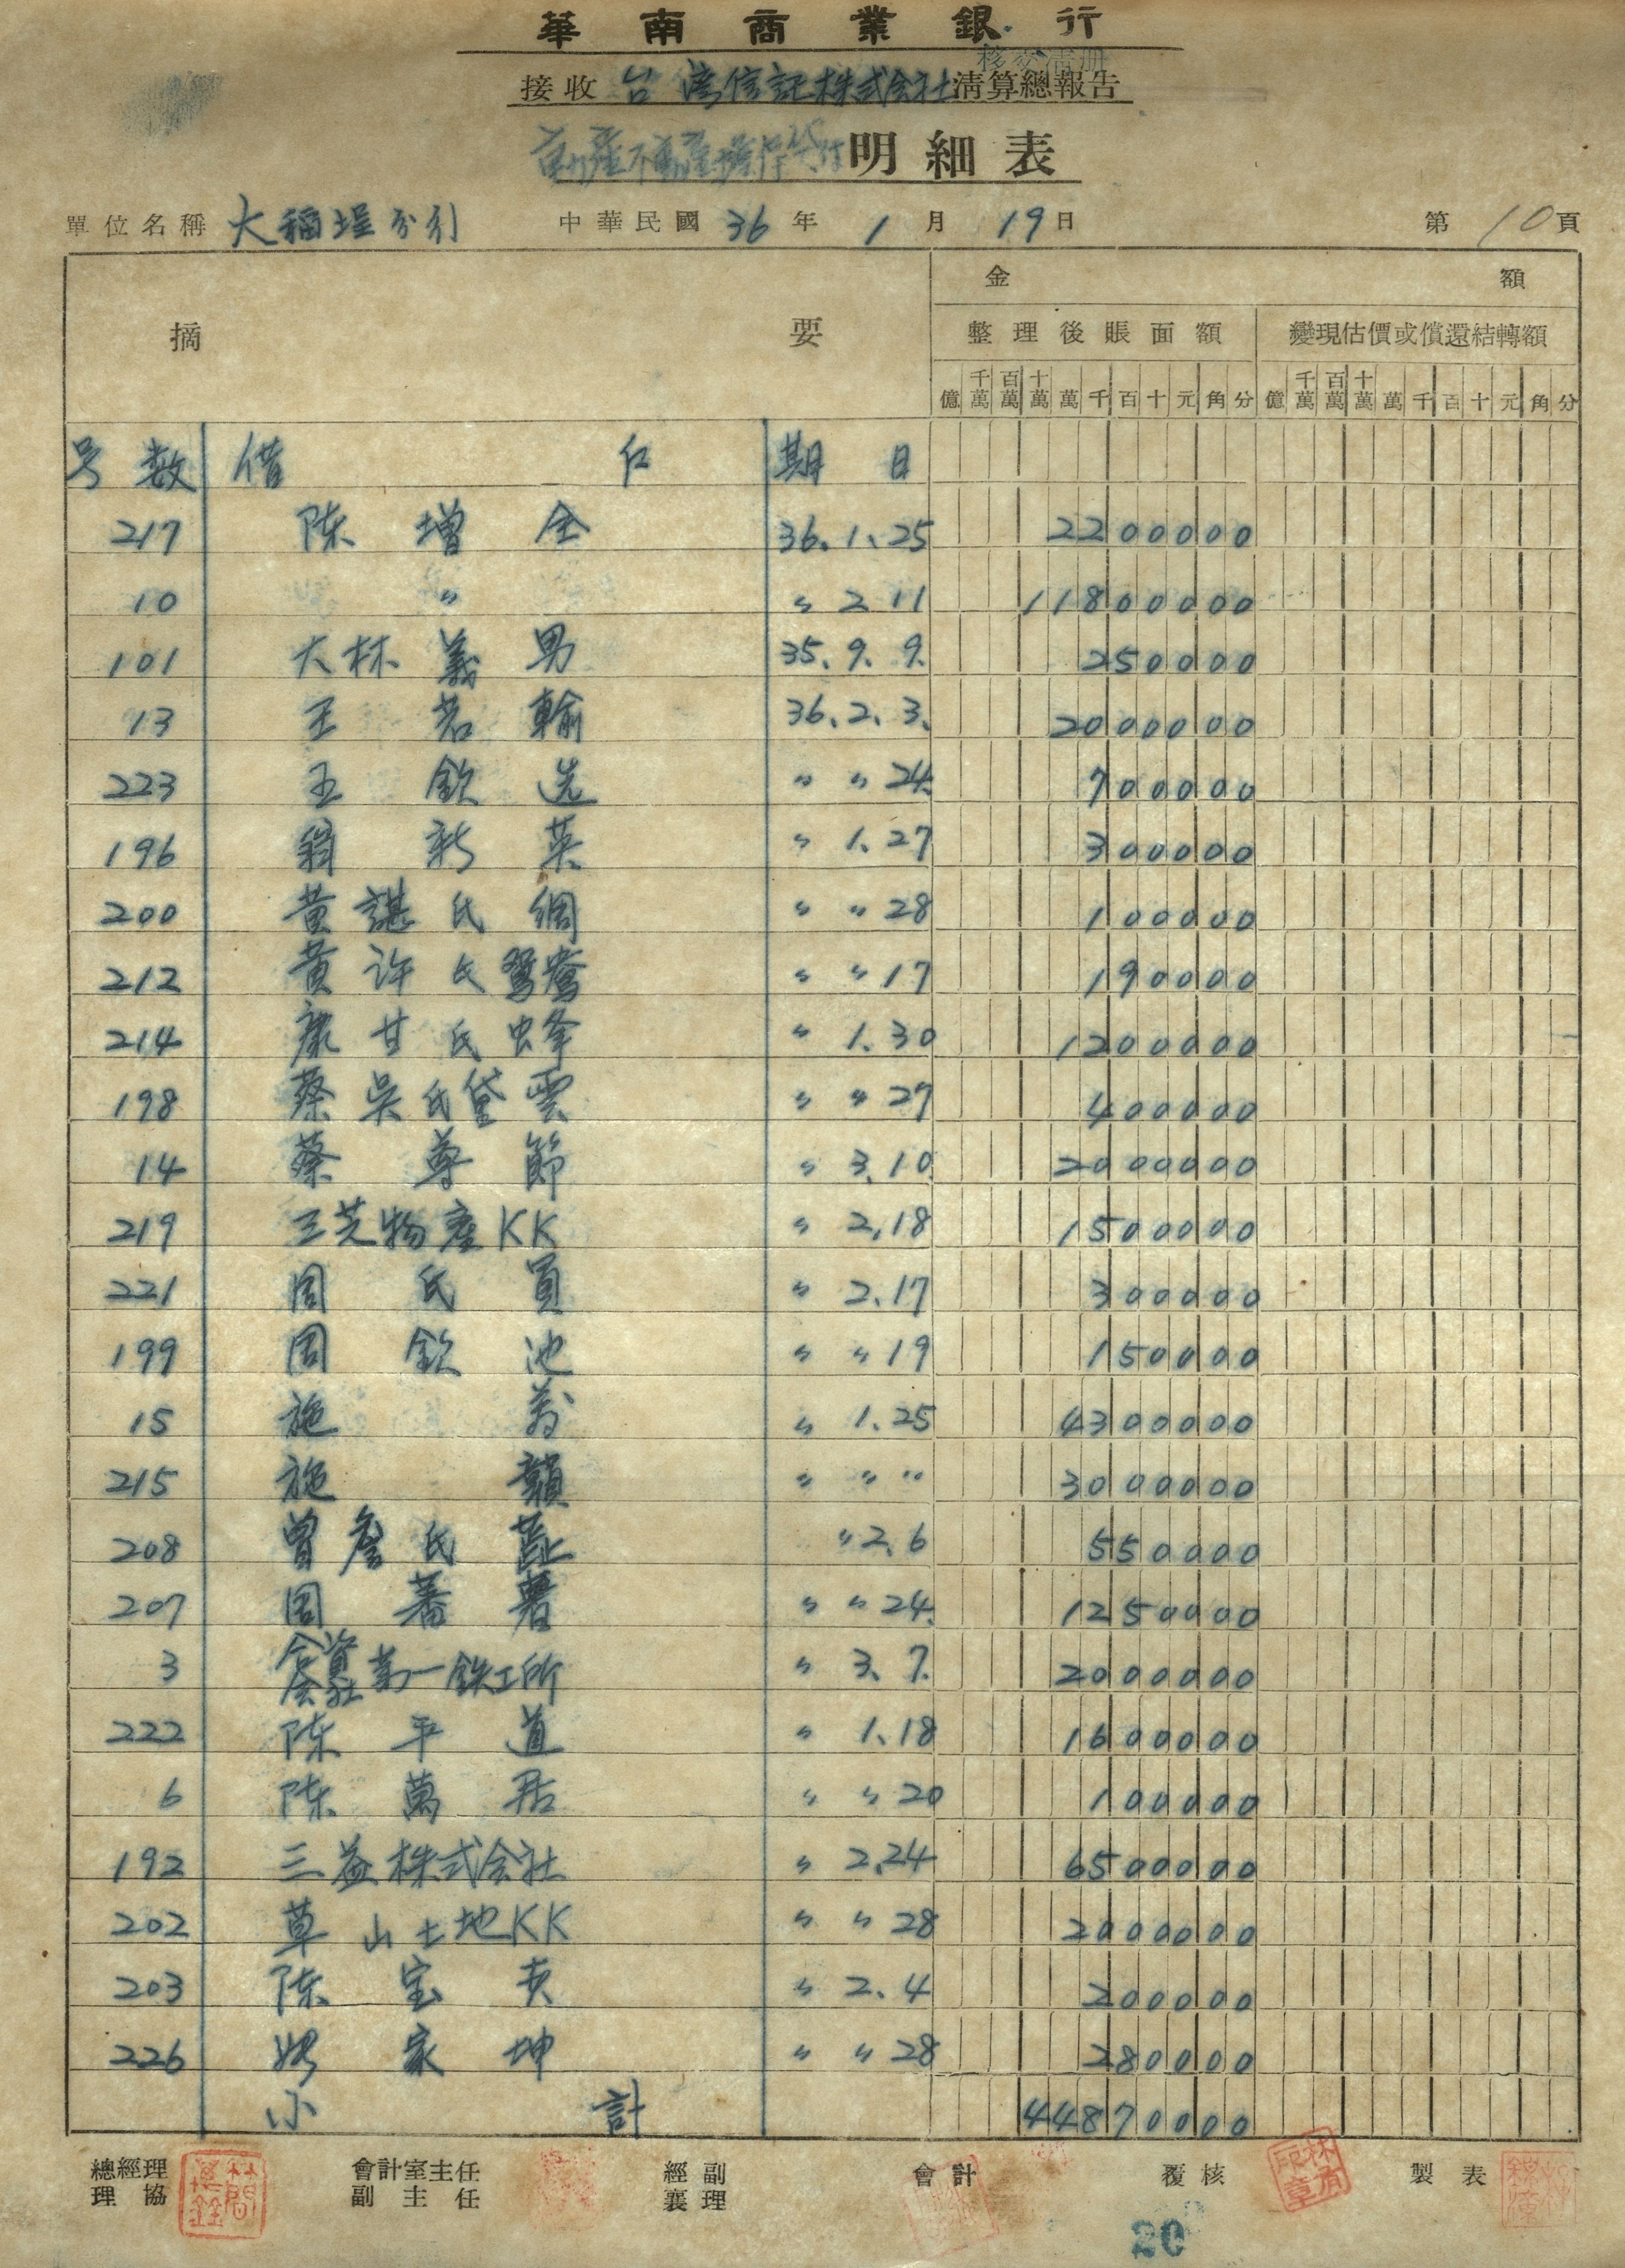 華南商業銀行
移交清冊
接收 台湾信託株式会社 清算總報告
動產不動產擔保貸付 明細表
單位名稱 大稻埕分行 中華民國 36 年 1 月 19 日 第 10 頁
摘要 金額
整理後賬面額 變現估價或償還結轉額
億 千萬 百萬 十萬 萬 千 百 十 元 角 分 億 千萬 百萬 十萬 萬 千 百 十 元 角 分
号数 借户 期日
217 陈增全 36.1.25 2200000
10 〃 〃 2 11 11800000
101 大林義男 35.9.9. 250000
13 王茗輸 36.2.3. 2000000
223 王欽选 〃 〃 24. 700000
196 翁新英 〃 1.27 300000
200 黄諶氏綢 〃 〃 28 100000
212 黄许氏鴛鴦 〃 〃 17 190000
214 康甘氏蜂 〃 1.30 1200000
198 蔡吳氏黛雲 〃 〃 27 400000
14 蔡尊節 〃 3.10. 2000000
219 三芝物產KK 〃 2.18 1500000
221 周氏買 〃 2.17 300000
199 周欽池 〃 〃 19 150000
15 施 〃 1.25 4300000
215 施 〃 〃 〃 3000000
208 曾詹氏 〃 2.6 550000
207 周蕃薯 〃 〃 24. 1250000
3 合資会社第一鉄工所 〃 3.7. 2000000
222 陈平道 〃 1.18 1600000
6 陈萬居 〃 〃 20 100000
192 三益株式会社 〃 2.24 6500000
202 草山土地KK 〃 〃 28 2000000
203 陈宝 〃 2.4 200000
226 家坤 〃 〃 28 280000
小計 44870000
總經理 會計室主任 經副 會計 覆核 製表
理協 副主任 襄理
20